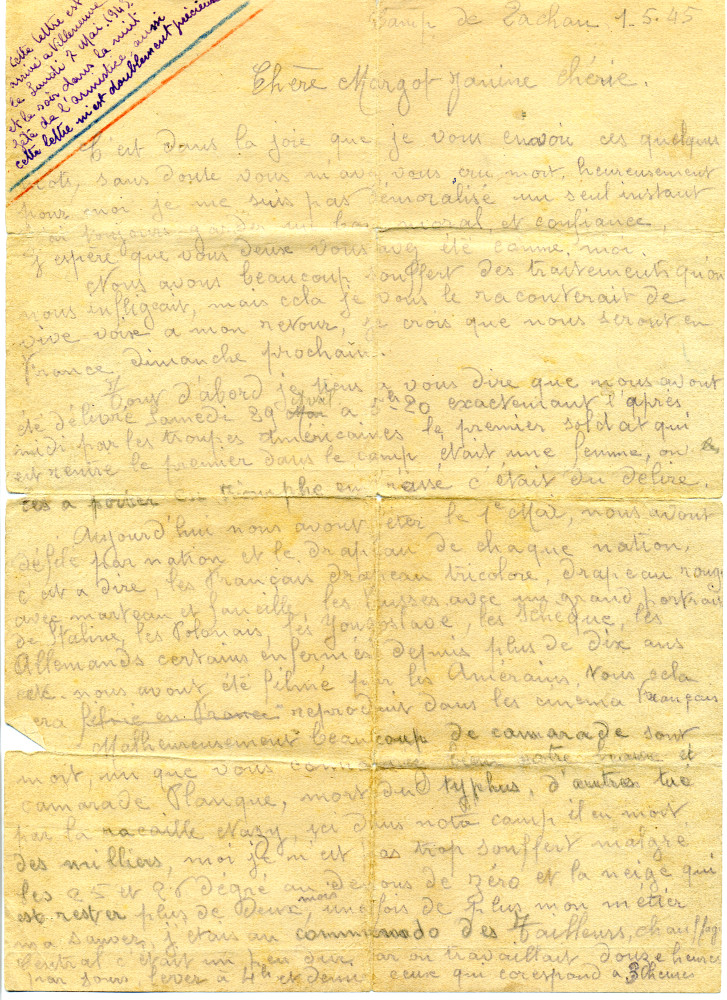 Cette lettre est
arrivé a Villeneuve
le Lundi 7 Mai 1945
et le soir dans la nuit
fête de l'armistice, aussi
cette lettre m'est doublement précieuse
Camp de Dachau 1-5-45
Chère Margot Janine chérie.
C'est dans la joie que je vous envoie ces quelques
mots, sans doute vous m'avez vous cru mort, heureusement
pour moi je me suis pas démoralisé un seul instant
j'ai toujours garder un bon moral, et confiance,
J'espère que vous deux vous avez été comme moi.
Nous avons beaucoup souffert des traitements qu'on
nous infligeait, mais cela je vous le raconterait de
vive voix a mon retour, je crois que nous seront en
France, dimanche prochain.
Tous d'abord je veux vous dire que nous avont
été délivré Samedi 29 avril a 5 hs 20 exactement l'après
midi par les troupes américaines le premier soldat qui
est rentré le premier dans le camp était une femme, on
a porter en triomphe c'était du délire.
Aujourd'hui nous avont fêter le 1e Mai, nous avont
défilé par nation et le drapeau de chaque nation,
c'est a dire, les Français drapeau tricolore, drapeau rouge
avec marteau et faucille, les Russes avec un grand portrait
de Staline, les Polonais, les Yougoslave, les Tchèque, les
Allemands certains enfermés depuis plus de dix ans
nous avont été filmé par les Américains. Vous cela
sera filmé en France reproduit dans les cinéma Français
Malheureusement beaucoup de camarade sont
mort, un que vous bien notre brave et
camarade Planque, mort du typhus, d'autres tué
par la racaille Nazy, ici dans notre camp il en mort
des milliers, moi je m'est pas trop souffert malgré
les 25 et 26 dégré au dessous de zéro et la neige qui
est rester plus de deux mois, une fois de plus mon métier
m'a sauver, j'étais au commando des Tailleurs, chauffage
central c'était un peu dur car on travaillait douze heures
par jours, lever à 4h et demi ceux qui corespond a 3 heures